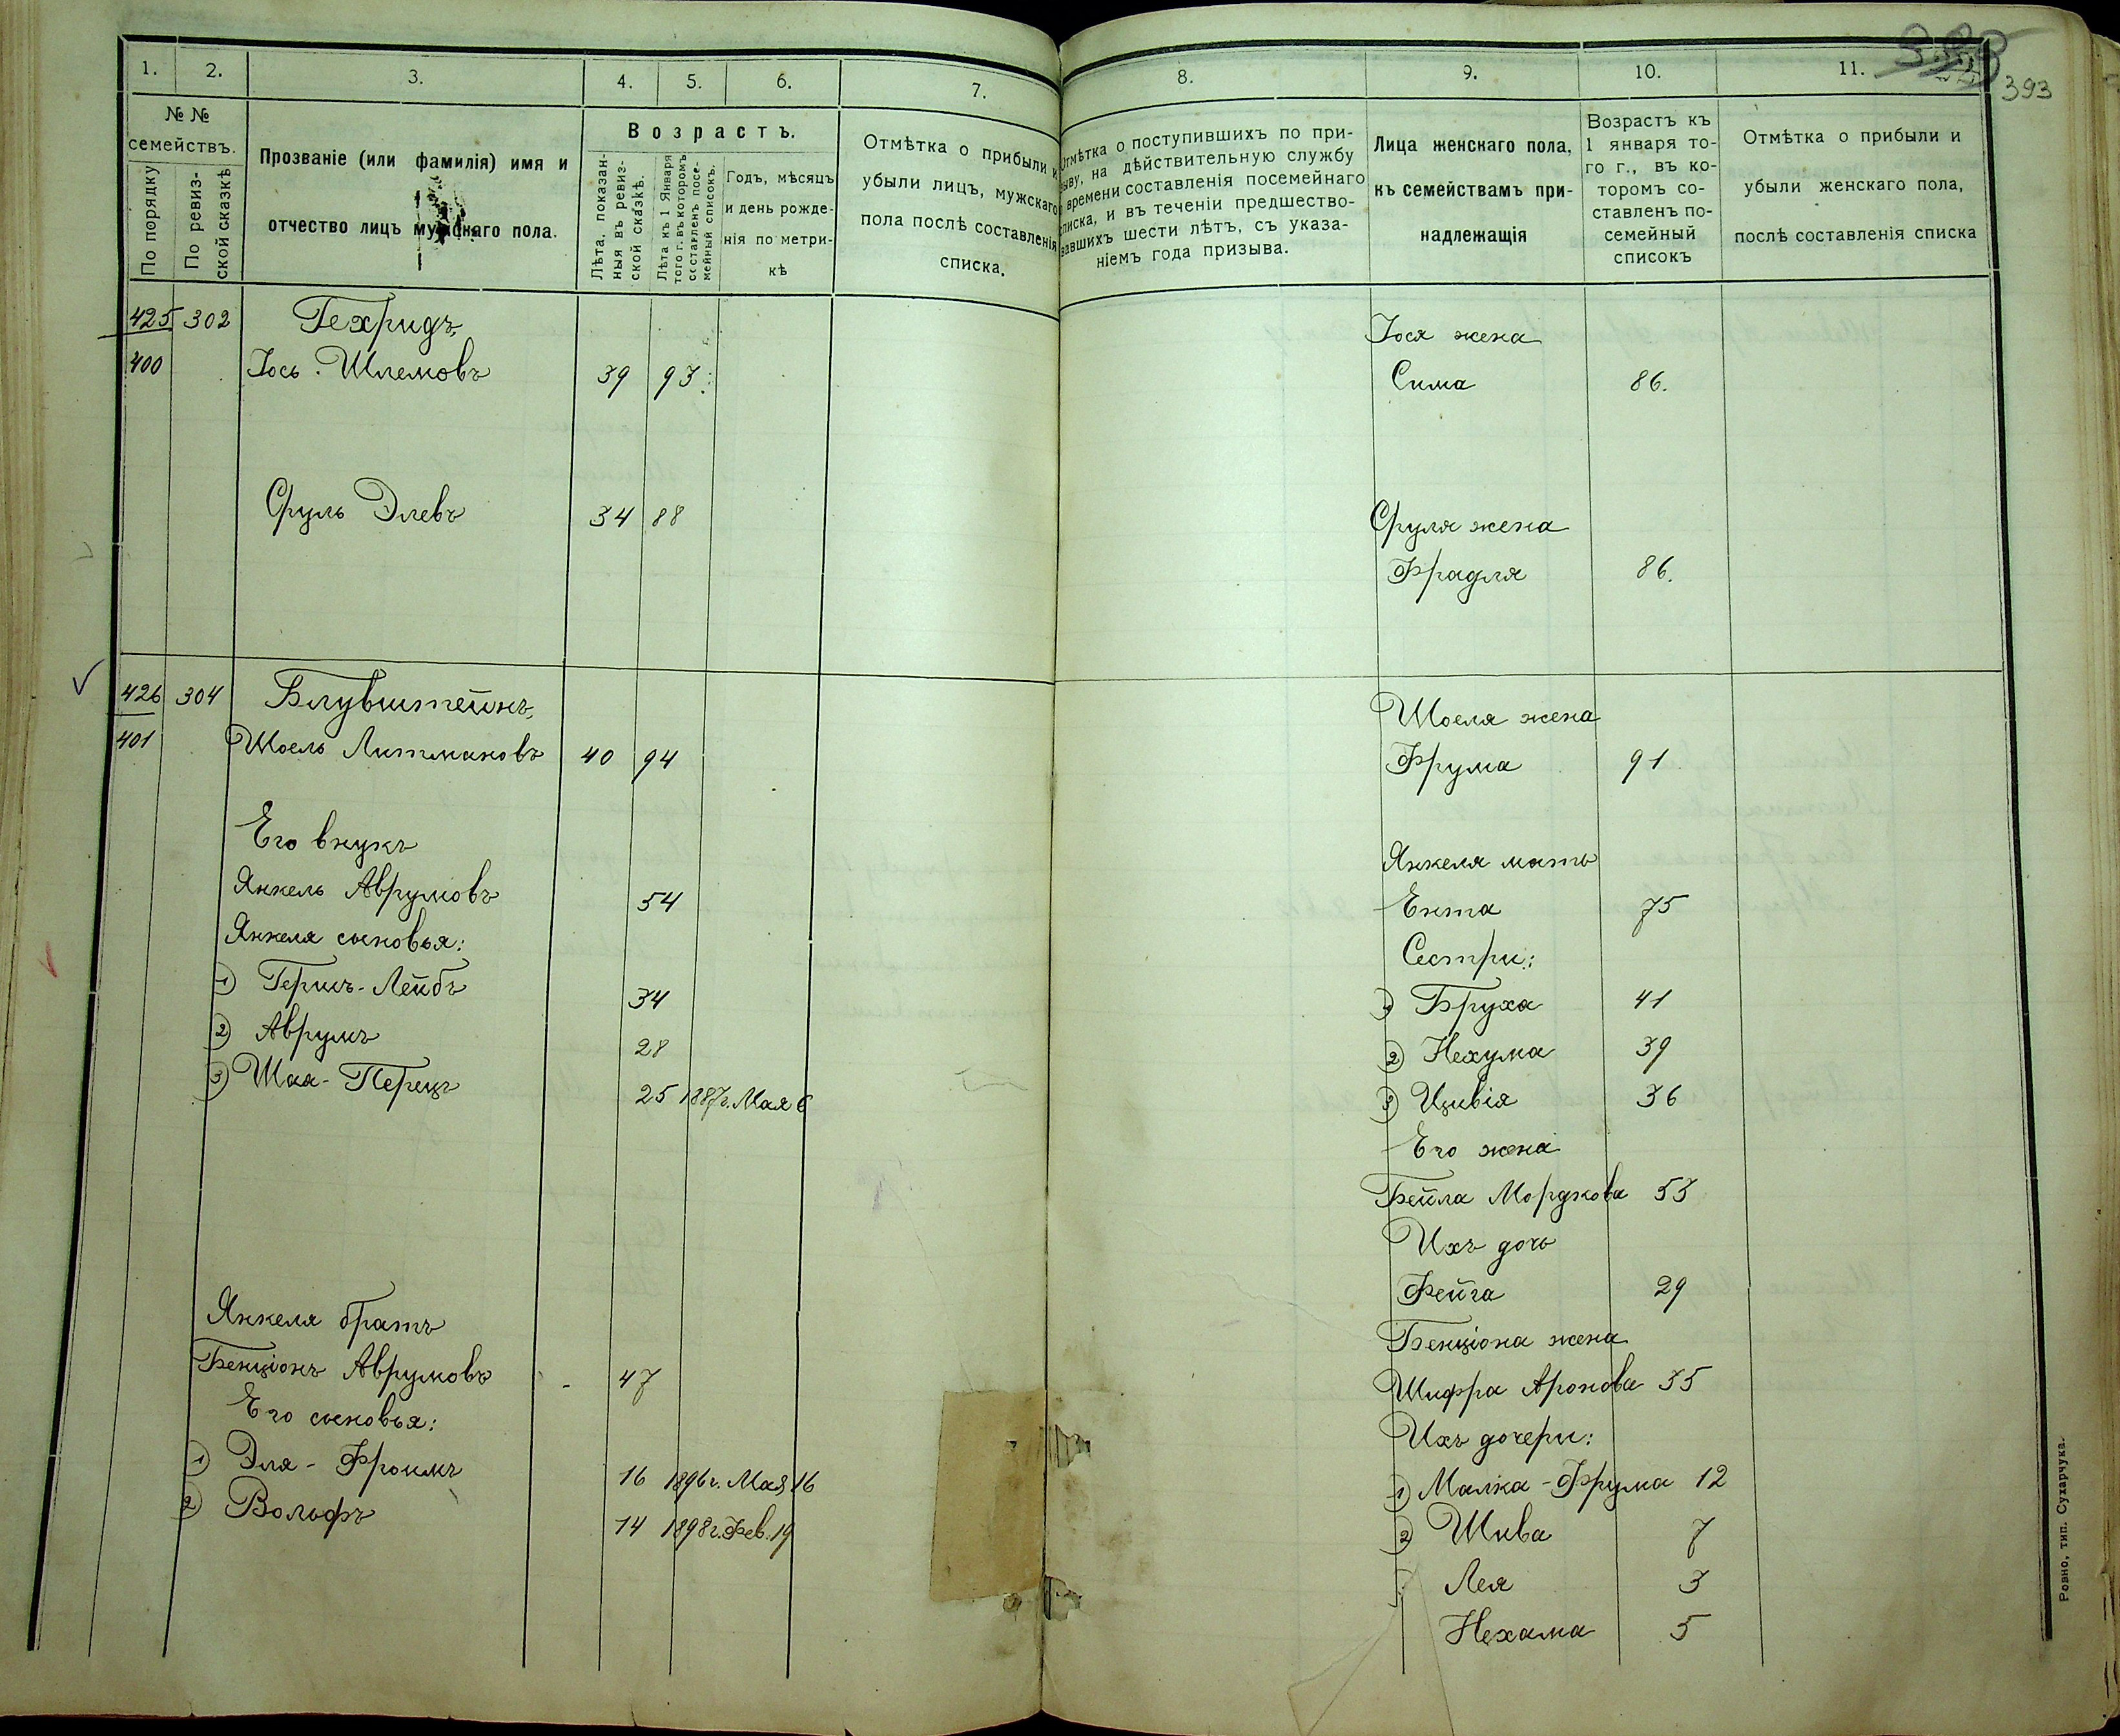 393
1.
2.
3.
4.
5.
6.
7.
8.
9.
10.
11.
№ №
семействъ.
По порядку
По ревиз-
ской сказкѣ
Прозваніе (или фамилія) имя и
отчество лицъ мужскаго пола.
Возрастъ.
Лѣта, показан-
ныя въ ревиз-
ской сказкѣ.
Лѣта къ 1 Января
того г. въ которомъ
составленъ посе-
мейный списокъ.
Годъ, мѣсяцъ
и день рожде-
нія по метри-
кѣ
Отмѣтка о прибыли и
убыли лицъ, мужскаго
пола послѣ составленія
списка.
Отмѣтка о поступившихъ по при-
зыву, на дѣйствительную службу
времени составленія посемейнаго
списка, и въ теченіи предшество-
вавшихъ шести лѣтъ, съ указа-
ніемъ года призыва.
Лица женскаго пола,
къ семействамъ при-
надлежащія
Возрастъ къ
1 января то-
го г., въ ко-
торомъ со-
ставленъ по-
семейный
списокъ
Отмѣтка о прибыли и
убыли женскаго пола,
послѣ составленія списка
425 302 Гехридъ,
400 Іось Шлемовъ 39 93
Сруль Элевъ 34 88
426 304 Блувштейнъ,
401 Шоель Литмановъ 40 94
Его внукъ
Янкель Аврумовъ 54
Янкеля сыновья:
1) Гершъ-Лейбъ 34
2) Аврумъ 28
3) Шая-Перецъ 25 1887г. Мая 6
Янкеля братъ
Бенціонъ Аврумовъ - 47
Его сыновья:
1) Эля-Фроимъ 16 1896г. Мая 16
2) Вольфъ 14 1898г. Фев. 19
Іося жена
Сима 86.
Сруля жена
Фрадля 86.
Шоеля жена
Фрума 91
Янкеля мать
Ента 75
Сестри:
1) Бруха 41
2) Нехума 39
3) Цивія 36
Его жена
Бейла Мордкова 53
Ихъ дочь
Фейга 29
Бенціона жена
Шифра Аронова 35
Ихъ дочери:
1) Малка-Фрума 12
2) Шива 7
Лея 3
Нехама 5
Ровно, тип. Сухарчука.